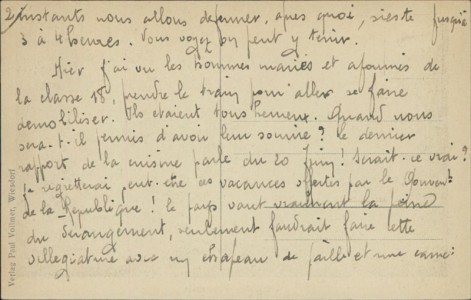 2/ instants nous allons déjeuner, après quoi, sieste jusque
3 à 4 heures. Vous voyez qu'on peut y tenir.
Hier j'ai vu les hommes mariés et de
la classe 18, prendre le train pour aller se faire
démobiliser. Ils étaient tous heureux. Quand nous
sera-t-il permis d'avoir leur sourire? le dernier
rapport de la parle du 20 Juin! Serait-ce vrai?
Je regretterai peut-être ces vacances offertes par le Gouvert
de la République! le pays vaut vraiment la peine
du dérangement, seulement faudrait faire cette
villégiature avec un chapeau de paille et une canne:
Verlag Paul Vollmer, Wiesdorf